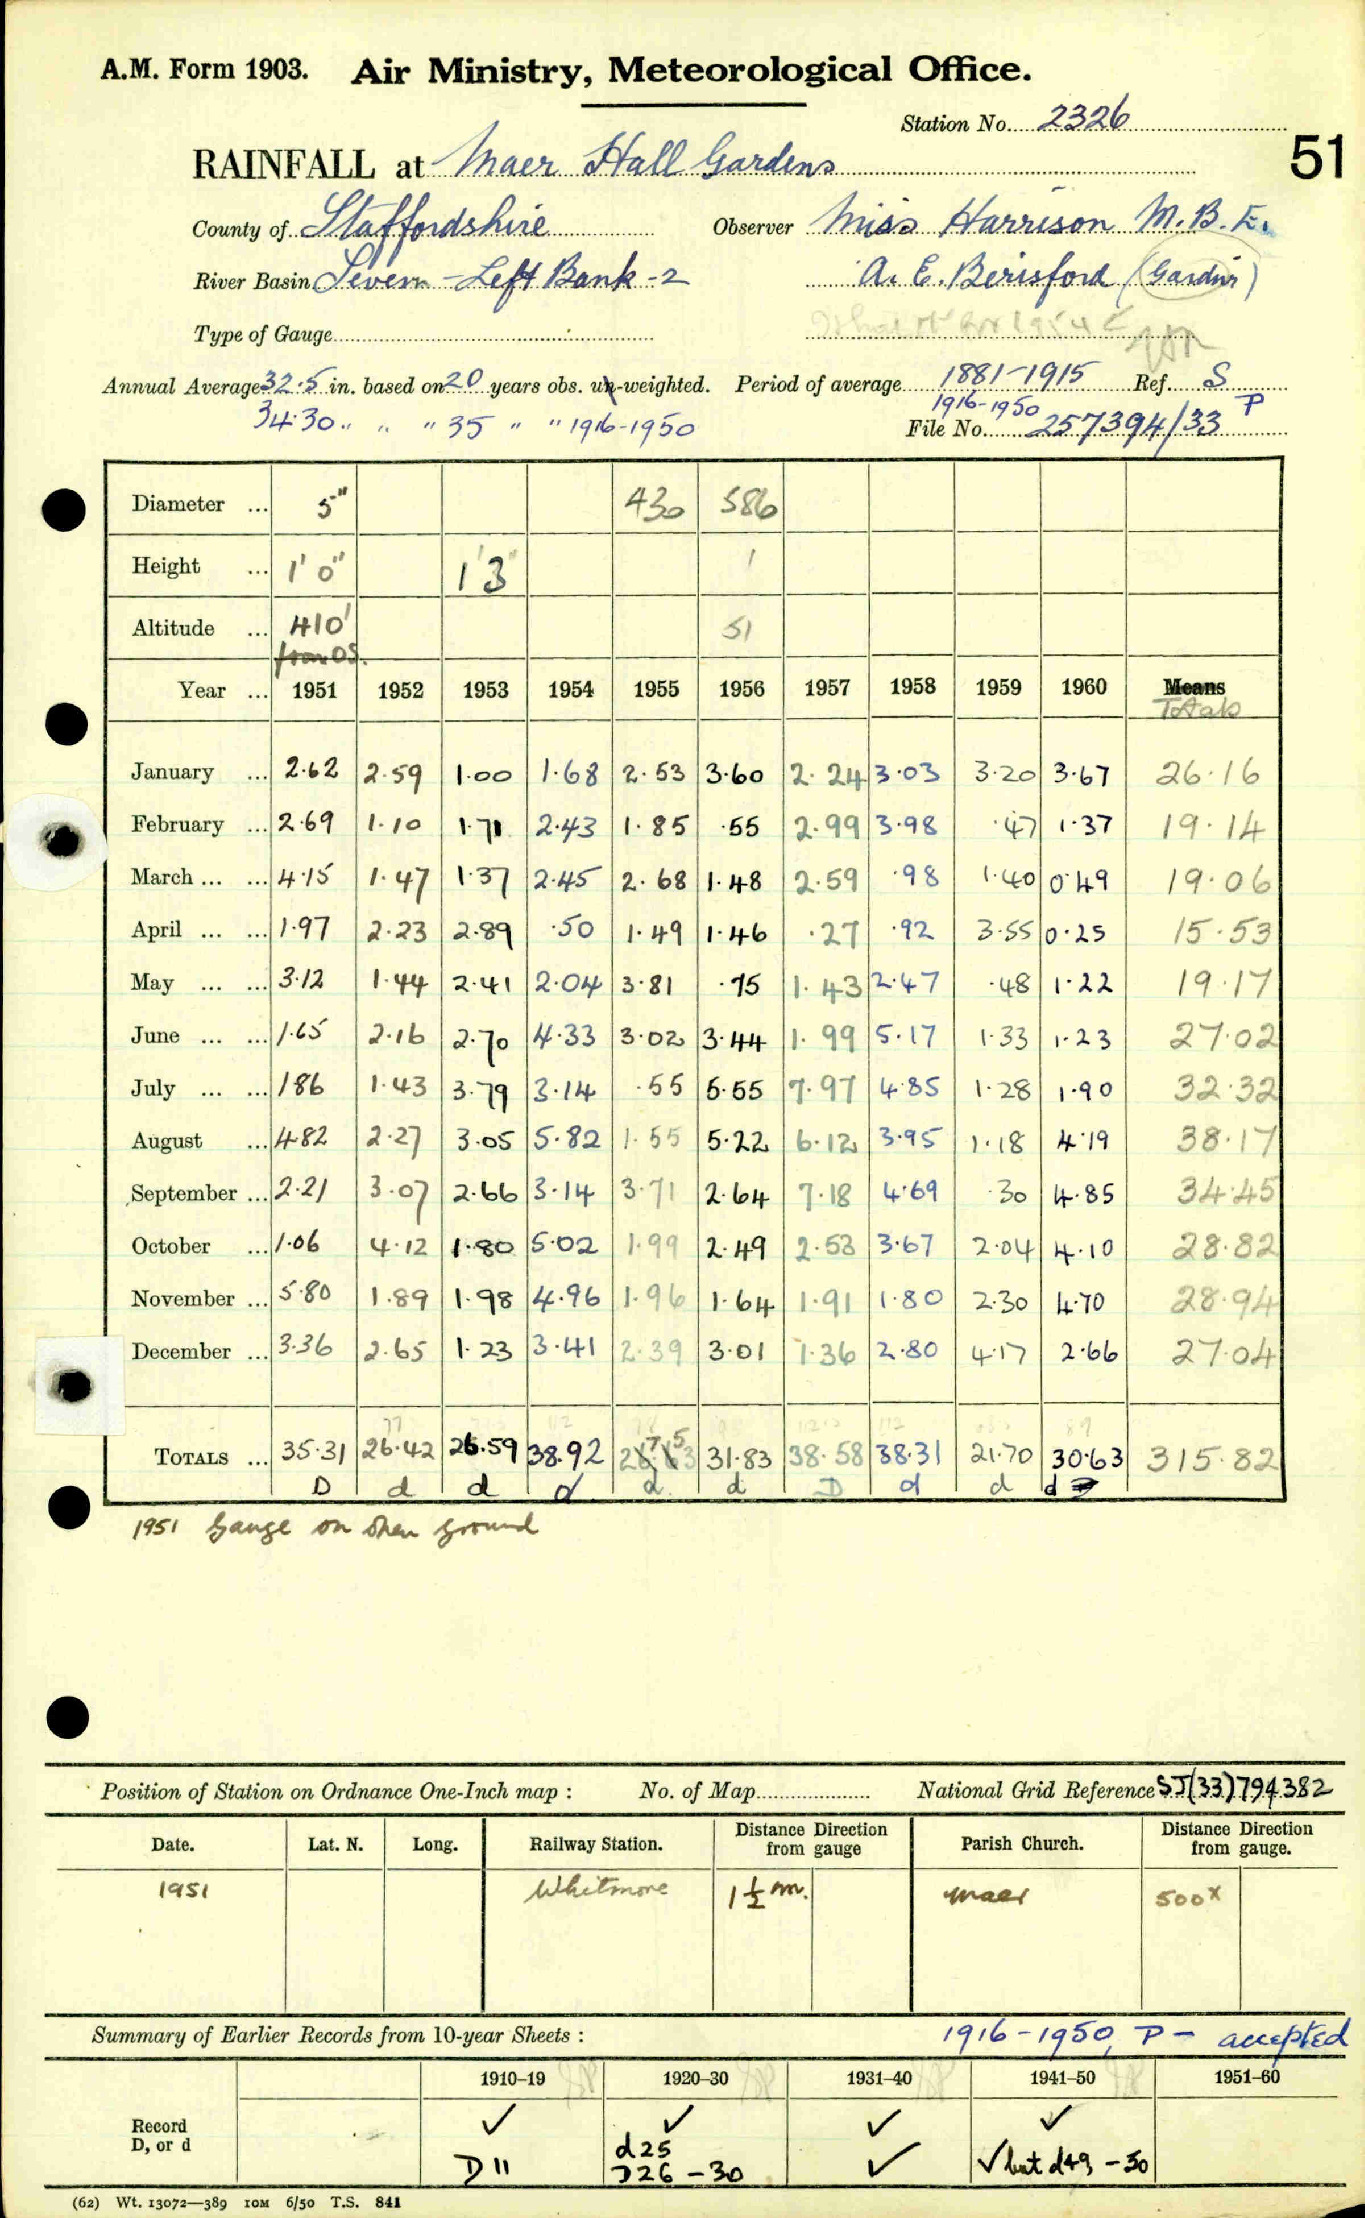 A.M. Form 1903. Air Ministry, Meteorological Office.
Station No. 2326
51
RAINFALL at Maer Hall Gardens
County of Staffordshire Observer Miss Harrison M.B.E.
River Basin Severn - Left Bank - 2 A. E. Berisford (Gardnr)
Type of Gauge
Annual Average 32.5 in. based on 20 years obs. un-weighted. Period of average 1881-1915 Ref. S
34.30 " " " 35 " " 1916-1950 1916-1950 P
File No. 257394/33
Diameter ... 5" 430 586
Height ... 1' 0" 1' 3" 1
Altitude ... 410' 51
from OS.
Year ... 1951 1952 1953 1954 1955 1956 1957 1958 1959 1960 Means
Totals
January ... 2.62 2.59 1.00 1.68 2.53 3.60 2.24 3.03 3.20 3.67 26.16
February ... 2.69 1.10 1.71 2.43 1.85 .55 2.99 3.98 .47 1.37 19.14
March ... ... 4.15 1.47 1.37 2.45 2.68 1.48 2.59 .98 1.40 0.49 19.06
April ... ... 1.97 2.23 2.89 .50 1.49 1.46 .27 .92 3.55 0.25 15.53
May ... ... 3.12 1.44 2.41 2.04 3.81 .75 1.43 2.47 .48 1.22 19.17
June ... ... 1.65 2.16 2.70 4.33 3.02 3.44 1.99 5.17 1.33 1.23 27.02
July ... ... 1.86 1.43 3.79 3.14 .55 5.55 7.97 4.85 1.28 1.90 32.32
August ... 4.82 2.27 3.05 5.82 1.55 5.22 6.12 3.95 1.18 4.19 38.17
September ... 2.21 3.07 2.66 3.14 3.71 2.64 7.18 4.69 .30 4.85 34.45
October ... 1.06 4.12 1.80 5.02 1.99 2.49 2.53 3.67 2.04 4.10 28.82
November ... 5.80 1.89 1.98 4.96 1.96 1.64 1.91 1.80 2.30 4.70 28.94
December ... 3.36 2.65 1.23 3.41 2.39 3.01 1.36 2.80 4.17 2.66 27.04
TOTALS ... 35.31 26.42 26.59 38.92 27.53 31.83 38.58 38.31 21.70 30.63 315.82
D d d d d d D d d d
1951 Gauge on open ground
Position of Station on Ordnance One-Inch map : No. of Map National Grid Reference SJ(33)794382
Date. Lat. N. Long. Railway Station. Distance Direction from gauge Parish Church. Distance Direction from gauge.
1951 Whitmore 1½ m. Maer 500x
Summary of Earlier Records from 10-year Sheets : 1916-1950, P - accepted
1910–19 1920–30 1931–40 1941–50 1951–60
Record ✓ ✓ ✓ ✓
D, or d D11 d25 D26-30 ✓ ✓ but d49-50
(62) Wt. 13072—389 10M 6/50 T.S. 841